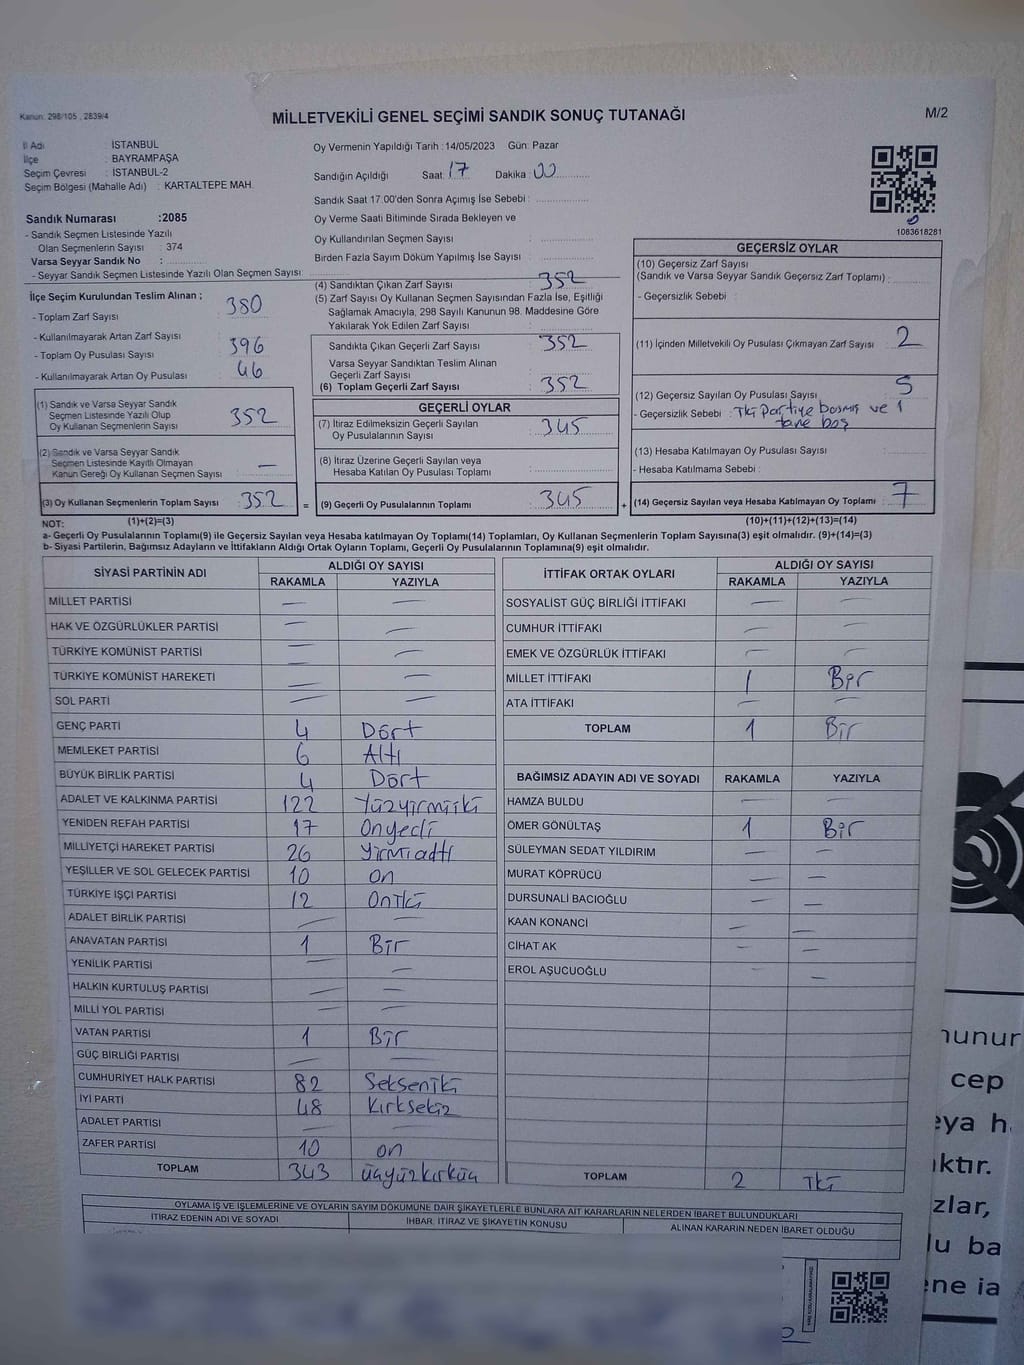 Kanun: 298/105 , 2839/4
MİLLETVEKİLİ GENEL SEÇİMİ SANDIK SONUÇ TUTANAĞI
M/2
İl Adı : İSTANBUL
İlçe : BAYRAMPAŞA
Seçim Çevresi : İSTANBUL-2
Seçim Bölgesi (Mahalle Adı) : KARTALTEPE MAH.
Sandık Numarası :2085
- Sandık Seçmen Listesinde Yazılı
Olan Seçmenlerin Sayısı : 374
Varsa Seyyar Sandık No :
- Seyyar Sandık Seçmen Listesinde Yazılı Olan Seçmen Sayısı:
Oy Vermenin Yapıldığı Tarih : 14/05/2023 Gün: Pazar
Sandığın Açıldığı Saat: 17 Dakika: 00
Sandık Saat 17.00'den Sonra Açımış İse Sebebi :
Oy Verme Saati Bitiminde Sırada Bekleyen ve
Oy Kullandırılan Seçmen Sayısı :
Birden Fazla Sayım Döküm Yapılmış İse Sayısı :
1063618281
İlçe Seçim Kurulundan Teslim Alınan ;
- Toplam Zarf Sayısı 380
- Kullanılmayarak Artan Zarf Sayısı
- Toplam Oy Pusulası Sayısı 396
- Kullanılmayarak Artan Oy Pusulası 46
(1) Sandık ve Varsa Seyyar Sandık
Seçmen Listesinde Yazılı Olup
Oy Kullanan Seçmenlerin Sayısı 352
(2) Sandık ve Varsa Seyyar Sandık
Seçmen Listesinde Kayıtlı Olmayan
Kanun Gereği Oy Kullanan Seçmen Sayısı —
(3) Oy Kullanan Seçmenlerin Toplam Sayısı 352
(4) Sandıktan Çıkan Zarf Sayısı 352
(5) Zarf Sayısı Oy Kullanan Seçmen Sayısından Fazla İse, Eşitliği
Sağlamak Amacıyla, 298 Sayılı Kanunun 98. Maddesine Göre
Yakılarak Yok Edilen Zarf Sayısı :
Sandıkta Çıkan Geçerli Zarf Sayısı : 352
Varsa Seyyar Sandıktan Teslim Alınan
Geçerli Zarf Sayısı :
(6) Toplam Geçerli Zarf Sayısı : 352
GEÇERLİ OYLAR
(7) İtiraz Edilmeksizin Geçerli Sayılan
Oy Pusulalarının Sayısı : 345
(8) İtiraz Üzerine Geçerli Sayılan veya
Hesaba Katılan Oy Pusulası Toplamı :
= (9) Geçerli Oy Pusulalarının Toplamı : 345 +
GEÇERSİZ OYLAR
(10) Geçersiz Zarf Sayısı
(Sandık ve Varsa Seyyar Sandık Geçersiz Zarf Toplamı) :
- Geçersizlik Sebebi :
(11) İçinden Milletvekili Oy Pusulası Çıkmayan Zarf Sayısı : 2
(12) Geçersiz Sayılan Oy Pusulası Sayısı : 5
- Geçersizlik Sebebi : İki Partiye basmış ve 1
tane boş
(13) Hesaba Katılmayan Oy Pusulası Sayısı :
- Hesaba Katılmama Sebebi :
(14) Geçersiz Sayılan veya Hesaba Katılmayan Oy Toplamı : 7
NOT: (1)+(2)=(3) (10)+(11)+(12)+(13)=(14)
a- Geçerli Oy Pusulalarının Toplamı(9) ile Geçersiz Sayılan veya Hesaba katılmayan Oy Toplamı(14) Toplamları, Oy Kullanan Seçmenlerin Toplam Sayısına(3) eşit olmalıdır. (9)+(14)=(3)
b- Siyasi Partilerin, Bağımsız Adayların ve İttifakların Aldığı Ortak Oyların Toplamı, Geçerli Oy Pusulalarının Toplamına(9) eşit olmalıdır.
SİYASİ PARTİNİN ADI ALDIĞI OY SAYISI
RAKAMLA YAZIYLA
MİLLET PARTİSİ — —
HAK VE ÖZGÜRLÜKLER PARTİSİ — —
TÜRKİYE KOMÜNİST PARTİSİ — —
TÜRKİYE KOMÜNİST HAREKETİ — —
SOL PARTİ — —
GENÇ PARTİ 4 Dört
MEMLEKET PARTİSİ 6 Altı
BÜYÜK BİRLİK PARTİSİ 4 Dört
ADALET VE KALKINMA PARTİSİ 122 Yüzyirmiiki
YENİDEN REFAH PARTİSİ 17 Onyedi
MİLLİYETÇİ HAREKET PARTİSİ 26 Yirmialtı
YEŞİLLER VE SOL GELECEK PARTİSİ 10 On
TÜRKİYE İŞÇİ PARTİSİ 12 Oniki
ADALET BİRLİK PARTİSİ — —
ANAVATAN PARTİSİ 1 Bir
YENİLİK PARTİSİ — —
HALKIN KURTULUŞ PARTİSİ — —
MİLLİ YOL PARTİSİ — —
VATAN PARTİSİ 1 Bir
GÜÇ BİRLİĞİ PARTİSİ — —
CUMHURİYET HALK PARTİSİ 82 Sekseniki
İYİ PARTİ 48 Kırksekiz
ADALET PARTİSİ — —
ZAFER PARTİSİ 10 on
TOPLAM 343 üçyüzkırküç
İTTİFAK ORTAK OYLARI ALDIĞI OY SAYISI
RAKAMLA YAZIYLA
SOSYALİST GÜÇ BİRLİĞİ İTTİFAKI — —
CUMHUR İTTİFAKI — —
EMEK VE ÖZGÜRLÜK İTTİFAKI — —
MİLLET İTTİFAKI 1 Bir
ATA İTTİFAKI — —
TOPLAM 1 Bir
BAĞIMSIZ ADAYIN ADI VE SOYADI RAKAMLA YAZIYLA
HAMZA BULDU — —
ÖMER GÖNÜLTAŞ 1 Bir
SÜLEYMAN SEDAT YILDIRIM — —
MURAT KÖPRÜCÜ — —
DURSUNALİ BACIOĞLU — —
KAAN KONANCİ — —
CİHAT AK — —
EROL AŞUCUOĞLU — —
TOPLAM 2 İki
OYLAMA İŞ VE İŞLEMLERİNE VE OYLARIN SAYIM DÖKÜMÜNE DAİR ŞİKAYETLERLE BUNLARA AİT KARARLARIN NELERDEN İBARET BULUNDUKLARI
İTİRAZ EDENİN ADI VE SOYADI İHBAR, İTİRAZ VE ŞİKAYETİN KONUSU ALINAN KARARIN NEDEN İBARET OLDUĞU
unur
cep
eya h
ktır.
zlar,
lu ba
ne ia